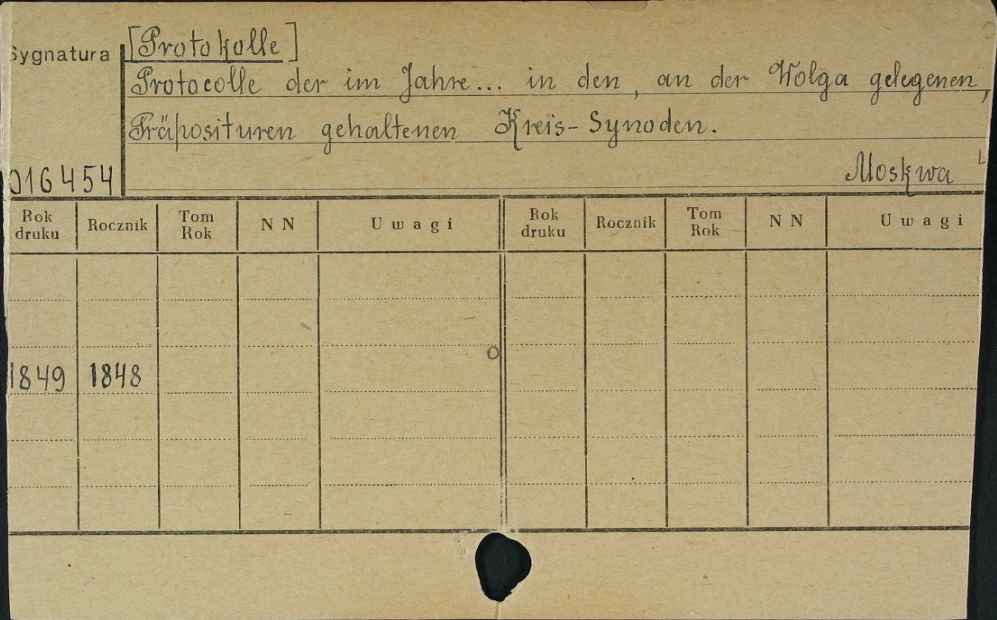 Sygnatura [Protokolle]
Protocolle der im Jahre... in den, an der Wolga gelegenen,
Präposituren gehaltenen Kreis-Synoden.
016454 Moskwa
Rok druku Rocznik Tom Rok N N Uwagi Rok druku Rocznik Tom Rok N N Uwagi
1849 1848